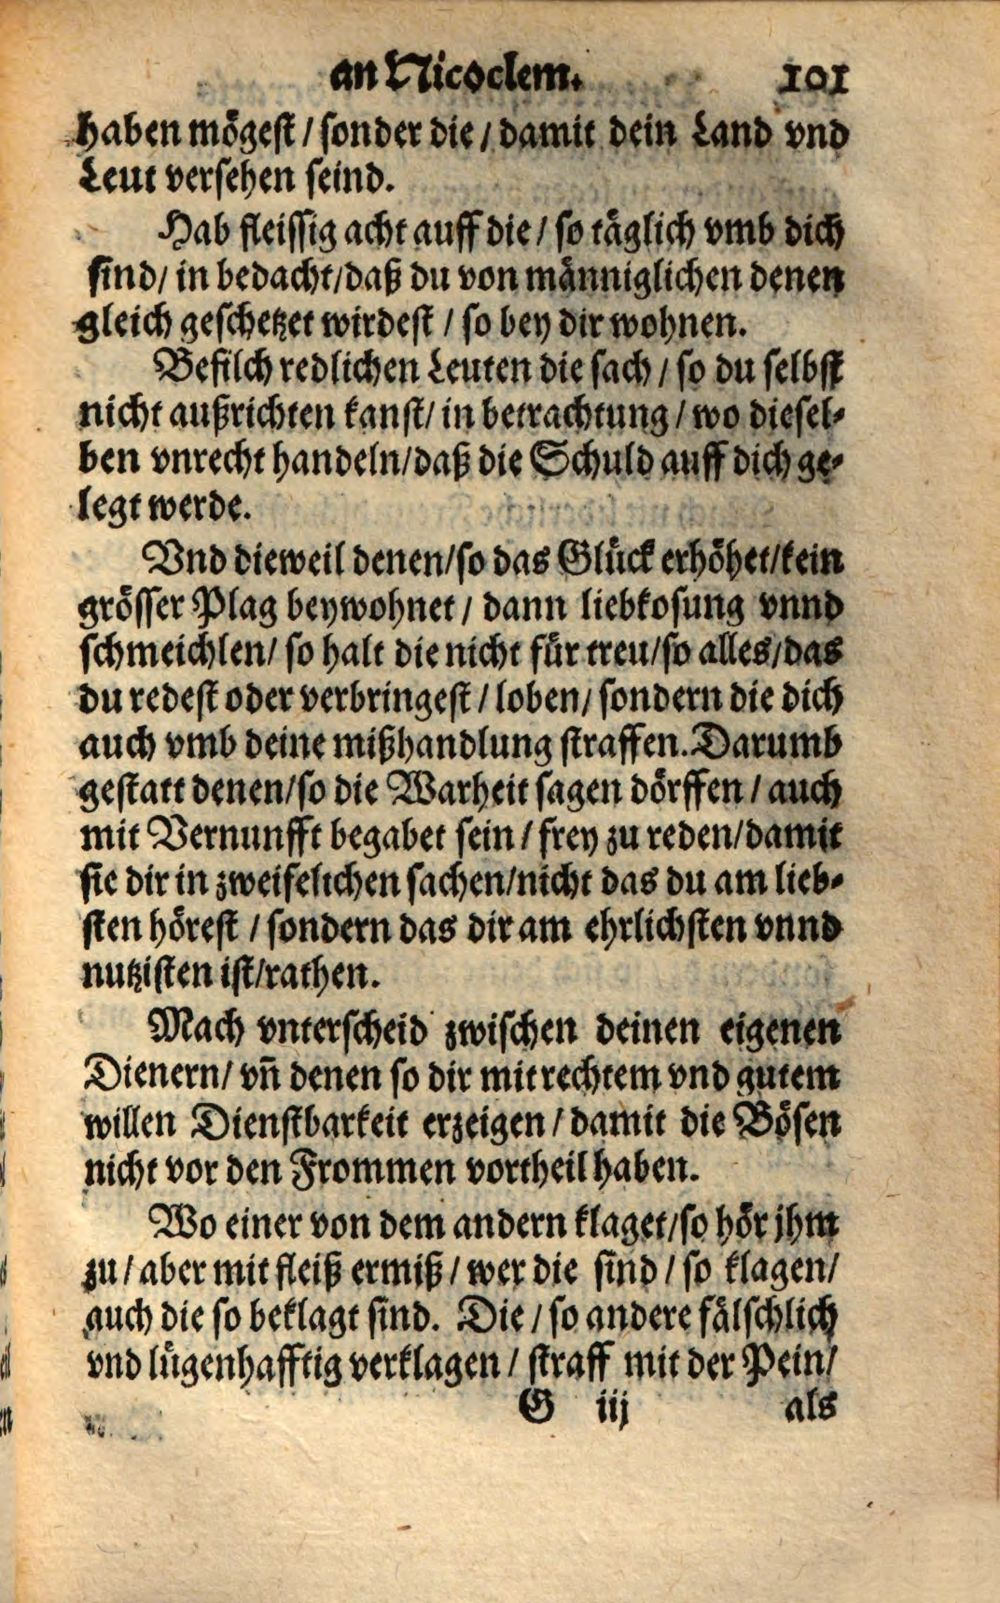 an Nicoclem. 101
haben mögest / sonder die / damit dein Land vnd
Leut versehen seind.
Hab fleissig acht auff die / so täglich vmb dich
sind / in bedacht / daß du von männiglichen denen
gleich geschetzet wirdest / so bey dir wohnen.
Befilch redlichen Leuten die sach / so du selbst
nicht außrichten kanst / in betrachtung / wo diesel-
ben vnrecht handeln / daß die Schuld auff dich ge-
legt werde.
Vnd dieweil denen / so das Glück erhöhet / kein
grösser Plag beywohnet / dann liebkosung vnnd
schmeichlen / so halt die nicht für treu / so alles / das
du redest oder verbringest / loben / sondern die dich
auch vmb deine mißhandlung straffen. Darumb
gestatt denen / so die Warheit sagen dörffen / auch
mit Vernunfft begabet sein / frey zu reden / damit
sie dir in zweifelichen sachen / nicht das du am lieb-
sten hörest / sondern das dir am ehrlichsten vnnd
nutzisten ist / rathen.
Mach vnterscheid zwischen deinen eigenen
Dienern / vñ denen so dir mit rechtem vnd gutem
willen Dienstbarkeit erzeigen / damit die Bösen
nicht vor den Frommen vortheil haben.
Wo einer von dem andern klaget / so hör jhm
zu / aber mit fleiß ermiß / wer die sind / so klagen /
auch die so beklagt sind. Die / so andere fälschlich
vnd lügenhafftig verklagen / straff mit der Pein /
G iij als